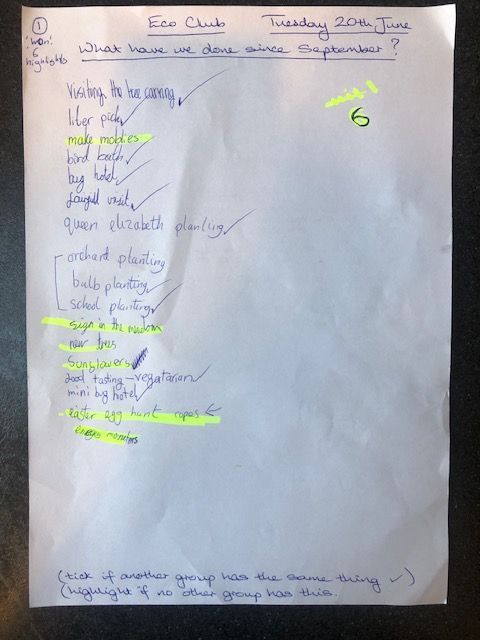 ① Eco Club Tuesday 20th June
'won' 6 highlights
What have we done since September?
Visiting the tree carving ✓
liter pick ✓
make moldies
bird bath ✓
bug hotel ✓
visit ✓
queen elizabeth planting ✓
orchard planting
bulb planting ✓
school planting ✓
sign in the
new trees
Sunflowers
food tasting - vegatarian ✓
mini bug hotel ✓
easter egg hunt ropes ←
monitors
6
(tick if another group has the same thing ✓)
(highlight if no other group has this.